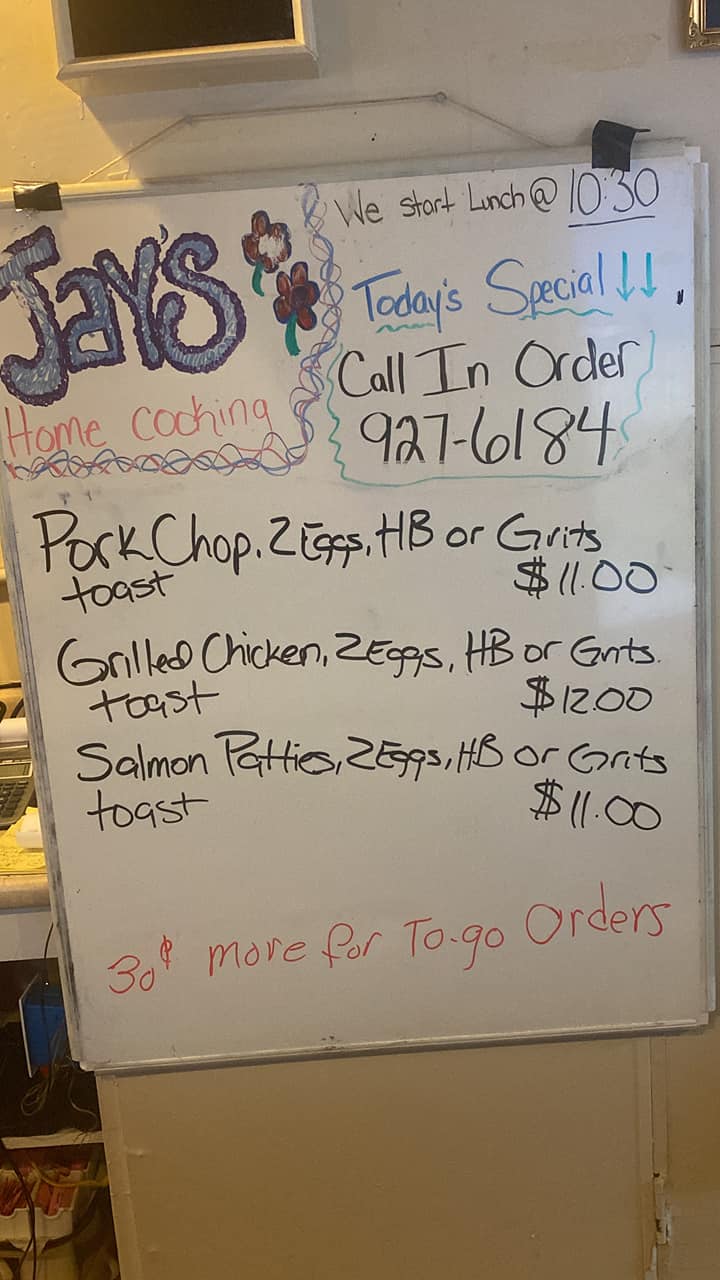 We start Lunch @ 10:30
JAY'S
Home Cooking
Today's Special ↓↓
Call In Order
927-6184
Pork Chop, 2 Eggs, HB or Grits
toast $11.00
Grilled Chicken, 2 Eggs, HB or Grits.
toast $12.00
Salmon Patties, 2 Eggs, HB or Grits
toast $11.00
30¢ more for To-go Orders